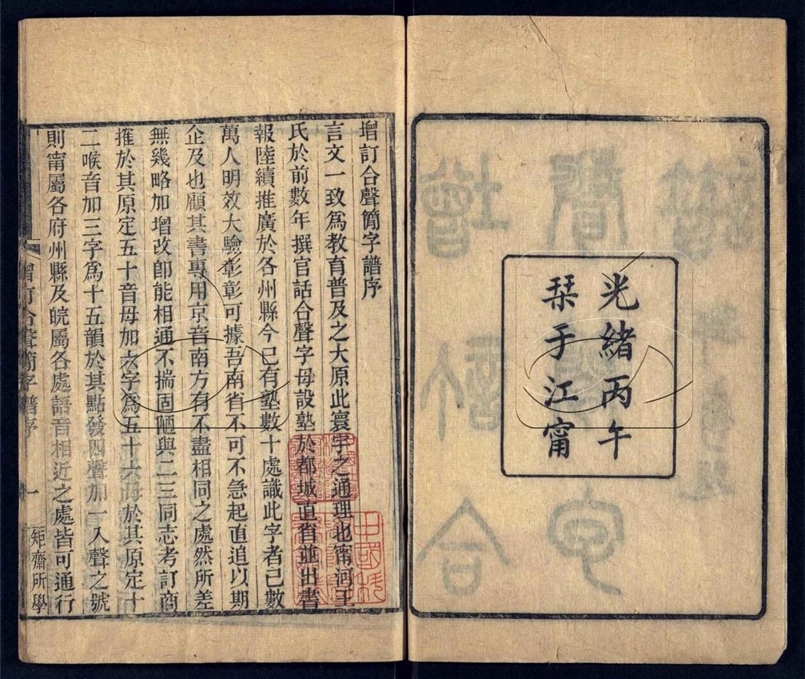 光緒丙午
栞于江甯
增訂合聲簡字譜序
言文一致爲教育普及之大原此寰宇之通理也甯河王
氏於前數年撰官話合聲字母設塾於都城直省並出書
報陸續推廣於各州縣今已有塾數十處識此字者已數
萬人明效大驗彰彰可據吾南省不可不急起直追以期
企及也顧其書專用京音南方有不盡相同之處然所差
無幾略加增改卽能相通不揣固陋與二三同志考訂商
搉於其原定五十音母加六字爲五十六母於其原定十
二喉音加三字爲十五韻於其點發四聲加一入聲之號
則甯屬各府州縣及皖屬各處語音相近之處皆可通行
增訂合聲簡字譜序
一
矩齋所學